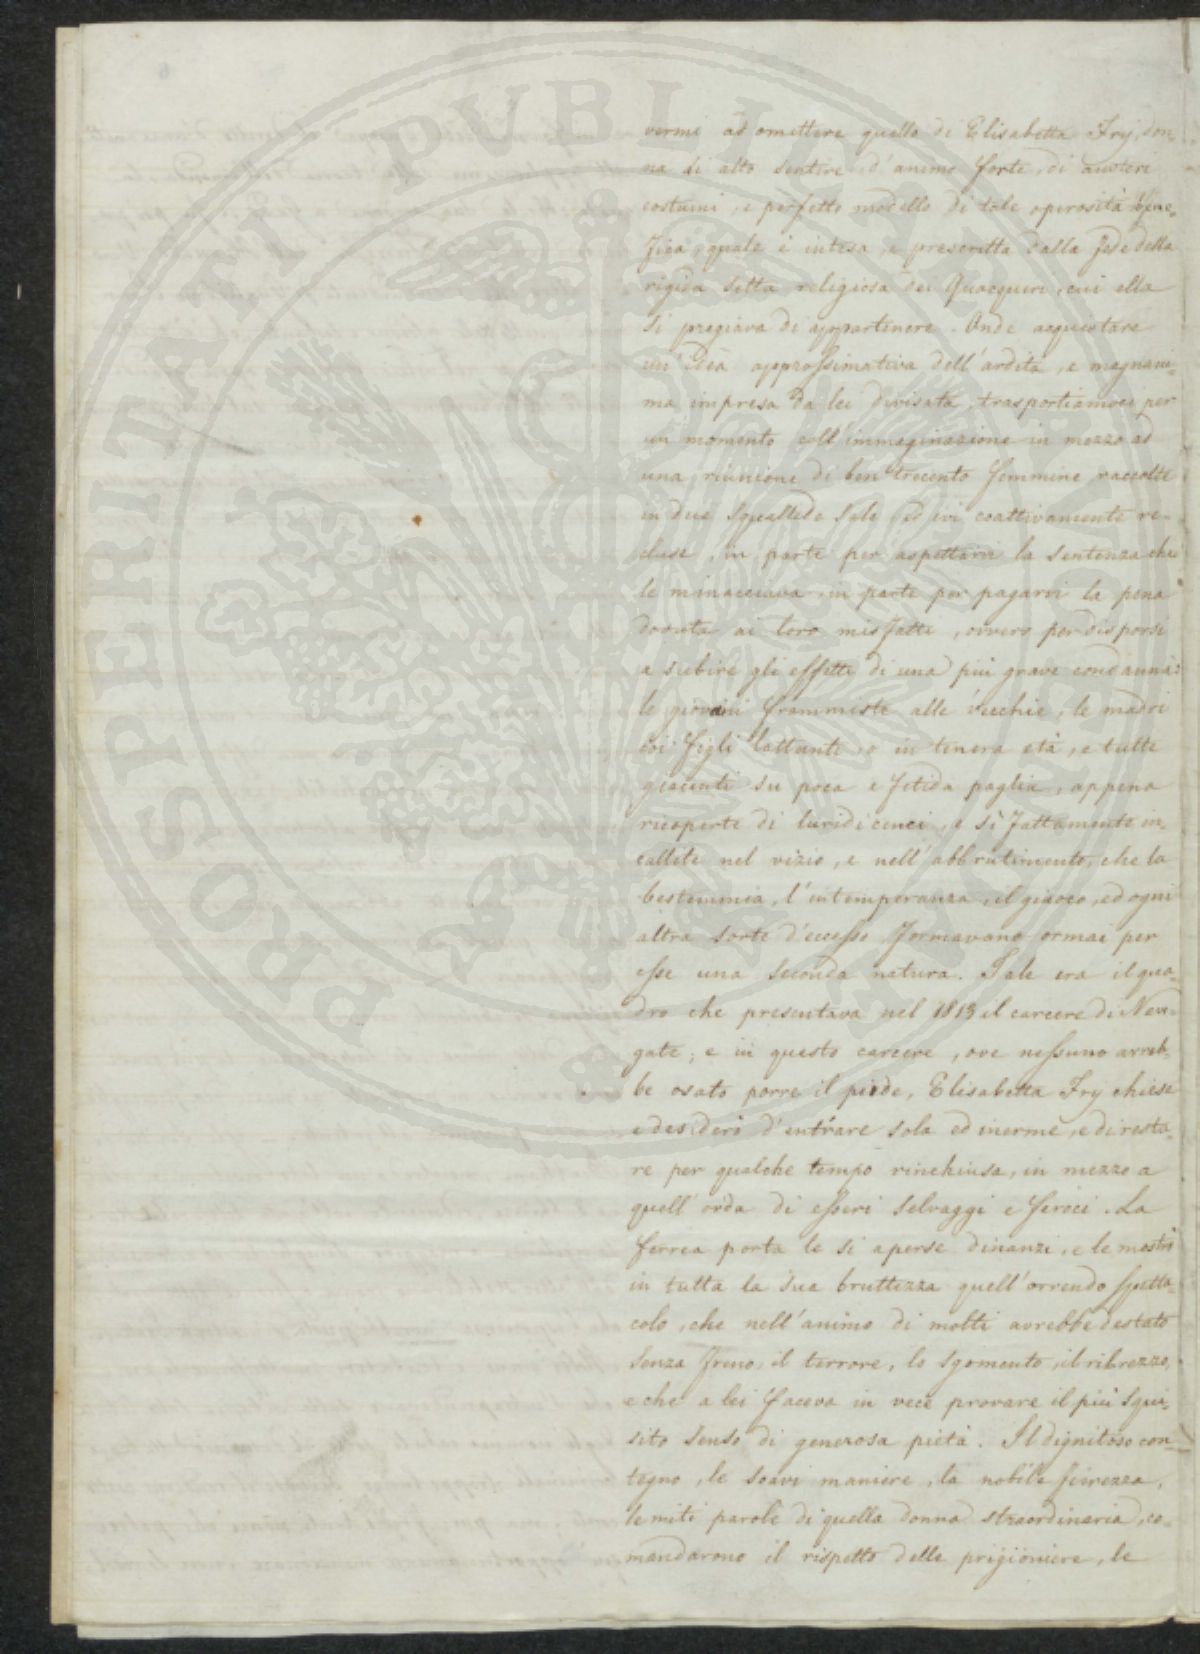 vermi ad omettere quello di Elisabetta Fry, don-
na di alto sentire, d'animo forte, di austeri
costumi, e perfetto modello di tale operosità bene-
fica, quale è intesa, e prescritta dalla fede della
rigida setta religiosa dei Quacqueri, cui ella
si pregiava di appartenere. Onde acquistare
un'idea approssimativa dell'ardita, e magnani-
ma impresa da lei divisata, trasportiamoci per
un momento coll'immaginazione in mezzo ad
una riunione di ben trecento femmine raccolte
in due squallide sale ed ivi coattivamente re-
cluse, in parte per aspettarvi la sentenza che
le minacciava, in parte per pagarvi la pena
dovuta ai loro misfatti, ovvero per disporsi
a subire gli effetti di una più grave condanna:
le giovani frammiste alle vecchie, le madri
coi figli lattanti, o in tenera età, e tutte
giacenti su poca e fetida paglia, appena
ricoperte di luridi cenci, e sì fattamente in-
callite nel vizio, e nell'abbrutimento, che la
bestemmia, l'intemperanza, il giuoco, ed ogni
altra sorte d'eccesso formavano ormai per
esse una seconda natura. Tale era il qua-
dro che presentava nel 1813 il carcere di New-
gate; e in questo carcere, ove nessuno avreb-
be osato porre il piede, Elisabetta Fry chiese
e desiderò d'entrare sola ed inerme, e di resta-
re per qualche tempo rinchiusa, in mezzo a
quell'orda di esseri selvaggi e feroci. La
ferrea porta le si aperse dinanzi, e le mostrò
in tutta la sua bruttezza quell'orrendo spetta-
colo, che nell'animo di molti avrebbe destato
senza freno, il terrore, lo sgomento, il ribrezzo,
e che a lei faceva in vece provare il più squi-
sito senso di generosa pietà. Il dignitoso con-
tegno, le soavi maniere, la nobile fierezza,
le miti parole di quella donna straordinaria, co-
mandarono il rispetto delle prigioniere, le
PROSPERITATI PUBLICAE